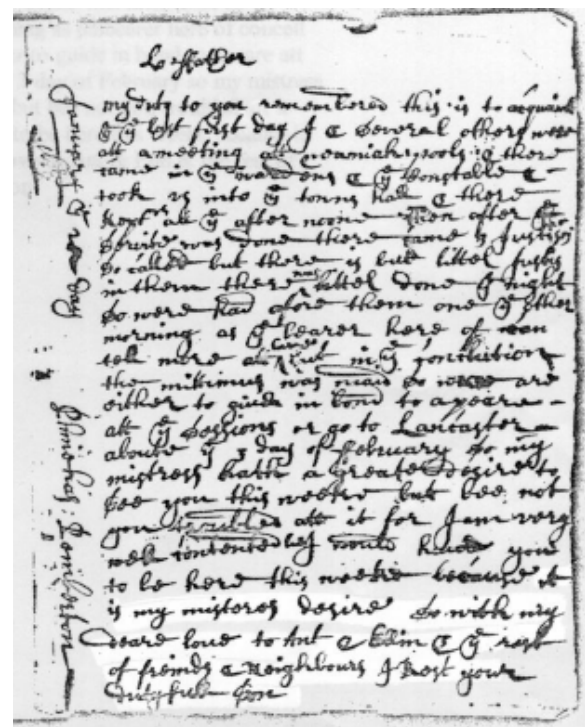 Lo ffather
my duty to you remembered this is to acquaint
yt ye last first day I & Several others were
att a meeting att & there
came in ye wardens & ye Constable &
took us into ye towns hall & there
kept us all ye after noone then after
Service was done there came ye Justises
so called but there is but littel Justis
in them there was littel done yt night
so were had afore them one ye other
morning as ye bearer here of can
tell more att Large but in ye Conclution
the mittimus was maid so wee are
either to give in bond to apeare
att ye Sessions or go to Lancaster
aboute ye 3 day of february so my
mistress hath a greate desire to
see you this weeke but bee not
you troubled att it for I am very
well contented I would have you
to be here this weeke because it
is my misteres desire so with my
deare love to Ant & & ye rest
of freinds & Neighbours I Rest your
dutyfull Son
Phinehas: Pemberton
January ye day